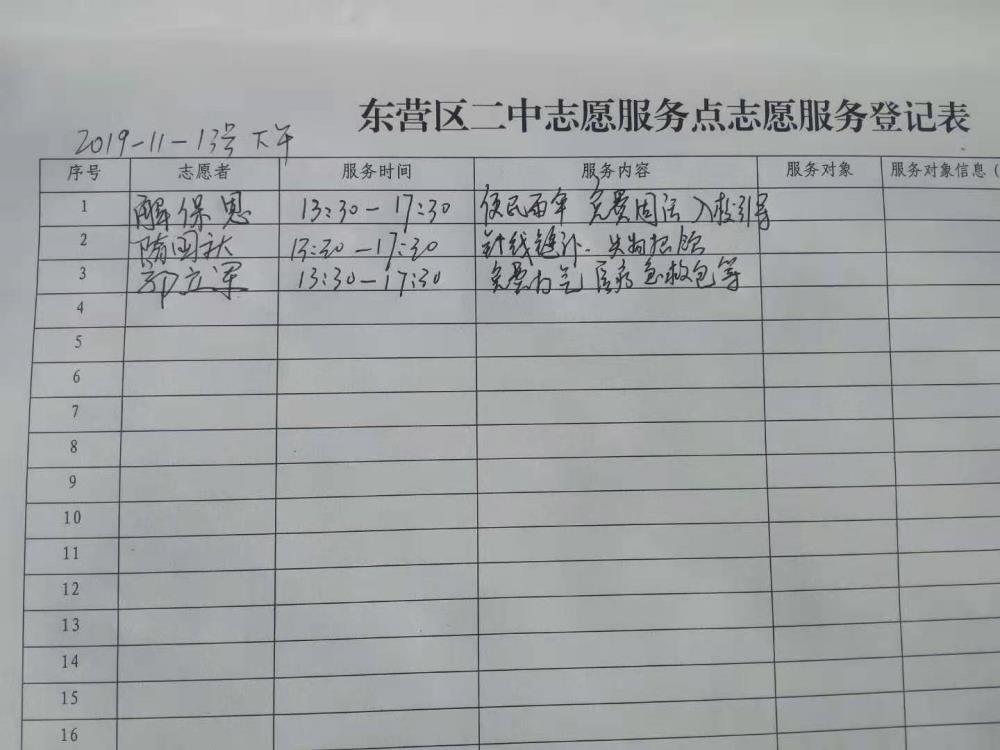 东营区二中志愿服务点志愿服务登记表
2019-11-13号 下午
序号 志愿者 服务时间 服务内容 服务对象 服务对象信息（
1 解保恩 13:30-17:30 便民雨伞 免费 入校引导
2 隋国 13:30-17:30 针线缝补、失物招领
3 立军 13:30-17:30 免费打气 医疗急救包等
4
5
6
7
8
9
10
11
12
13
14
15
16